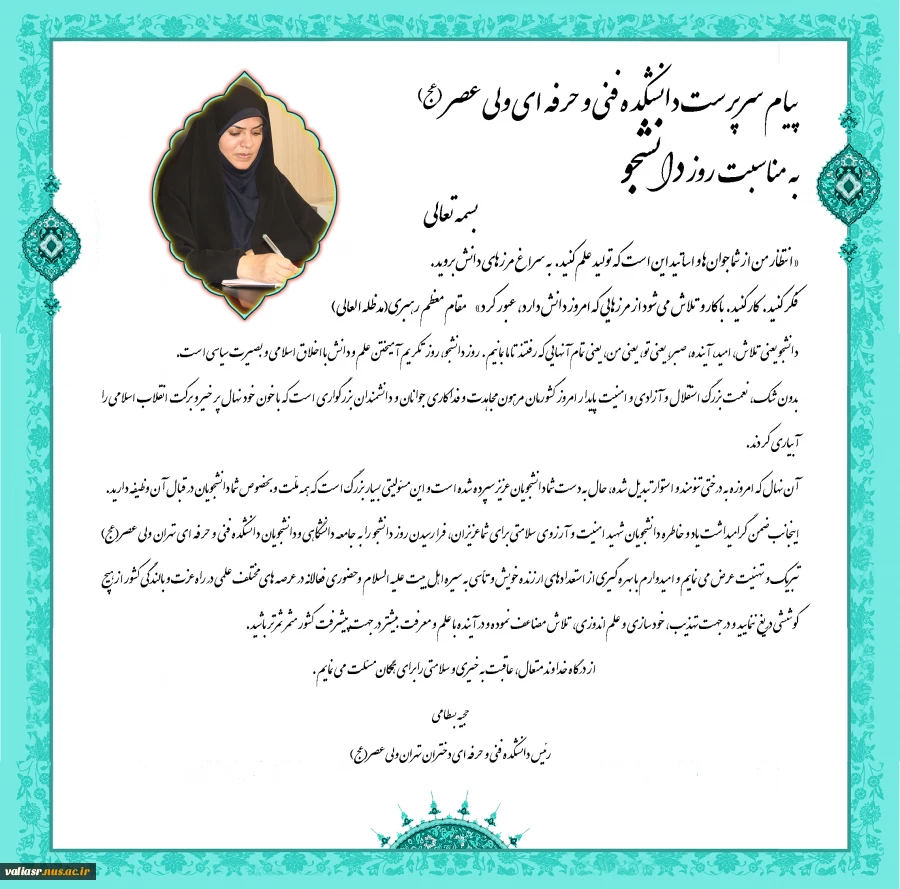 پیام سرپرست دانشکده فنی و حرفه ای ولی عصر (عج)
به مناسبت روز دانشجو
بسمه تعالی
«انتظار من از شما جوان ها و اساتید این است که تولید علم کنید. به سراغ مرزهای دانش بروید.
فکر کنید. کار کنید. با کار و تلاش می شود از مرزهایی که امروز دانش دارد، عبور کرد» مقام معظم رهبری(مدظله العالی)
دانشجو یعنی تلاش، امید، آینده، صبر، یعنی تو، یعنی من، یعنی تمام آنهایی که رفتند تا ما بمانیم . روز دانشجو، روز تکریم آمیختن علم و دانش با اخلاق اسلامی و بصیرت سیاسی است.
بدون شک، نعمت بزرگ استقلال و آزادی و امنیت پایدار امروز کشورمان مرهون مجاهدت و فداکاری جوانان و دانشمندان بزرگواری است که با خون خود نهال پر خیر و برکت انقلاب اسلامی را
آبیاری کردند.
آن نهال که امروزه به درختی تنومند و استوار تبدیل شده، حال به دست شما دانشجویان عزیز سپرده شده است و این مسئولیتی بسیار بزرگ است که همه ملت و بخصوص شما دانشجویان در قبال آن وظیفه دارید.
اینجانب ضمن گرامیداشت یاد و خاطره دانشجویان شهید امنیت و آرزوی سلامتی برای شما عزیزان، فرا رسیدن روز دانشجو را به جامعه دانشگاهی و دانشجویان دانشکده فنی و حرفه ای تهران ولی عصر(عج)
تبریک و تهنیت عرض می نمایم و امیدوارم با بهره گیری از استعدادهای ارزنده خویش و تاسی به سیره اهل بیت علیه السلام و حضوری فعالانه در عرصه های مختلف علمی در راه عزت و بالندگی کشور از هیچ
کوششی دریغ ننمایید و در جهت تهذیب، خودسازی و علم اندوزی، تلاش مضاعف نموده و در آینده با علم و معرفت بیشتر در جهت پیشرفت کشور مثمر ثمرتر باشید.
از درگاه خداوند متعال، عاقبت به خیری و سلامتی را برای همگان مسئلت می نمایم .
بسطامی
رئیس دانشکده فنی و حرفه ای دختران تهران ولی عصر(عج)
valiasr.nus.ac.ir